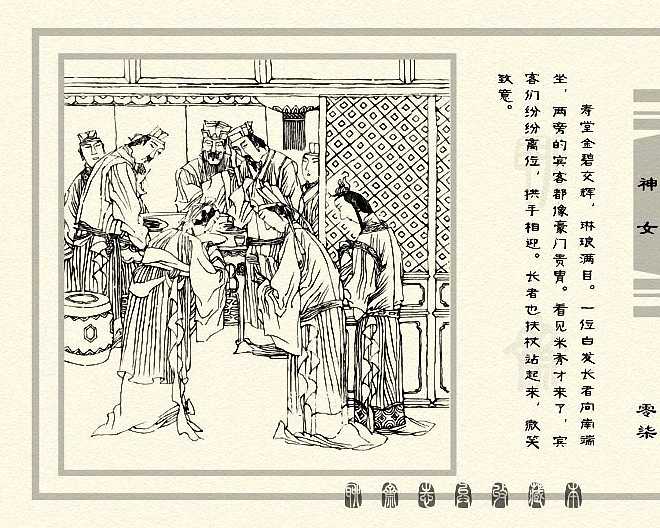 寿堂金碧交辉，琳琅满目。一位白发长者向南端
坐，两旁的宾客都像豪门贵胄。看见米秀才来了，宾
客们纷纷离位，拱手相迎。长者也扶杖站起来，微笑
致意。
神女
零柒
聊斋志异收藏本